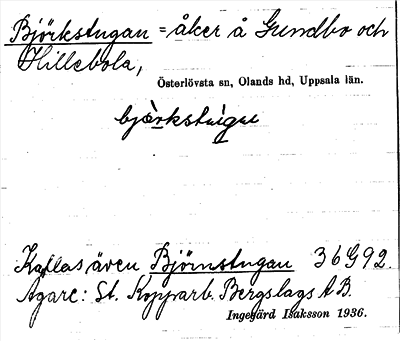 Björkstugan = åker å Gundbo och
Hillebola,
Österlövsta sn, Olands hd, Uppsala län.
björkstugu
Kallas även Björnstugan 36G92.
Ägare: St. Kopparb. Bergslags A.B.
Ingegärd Isaksson 1936.